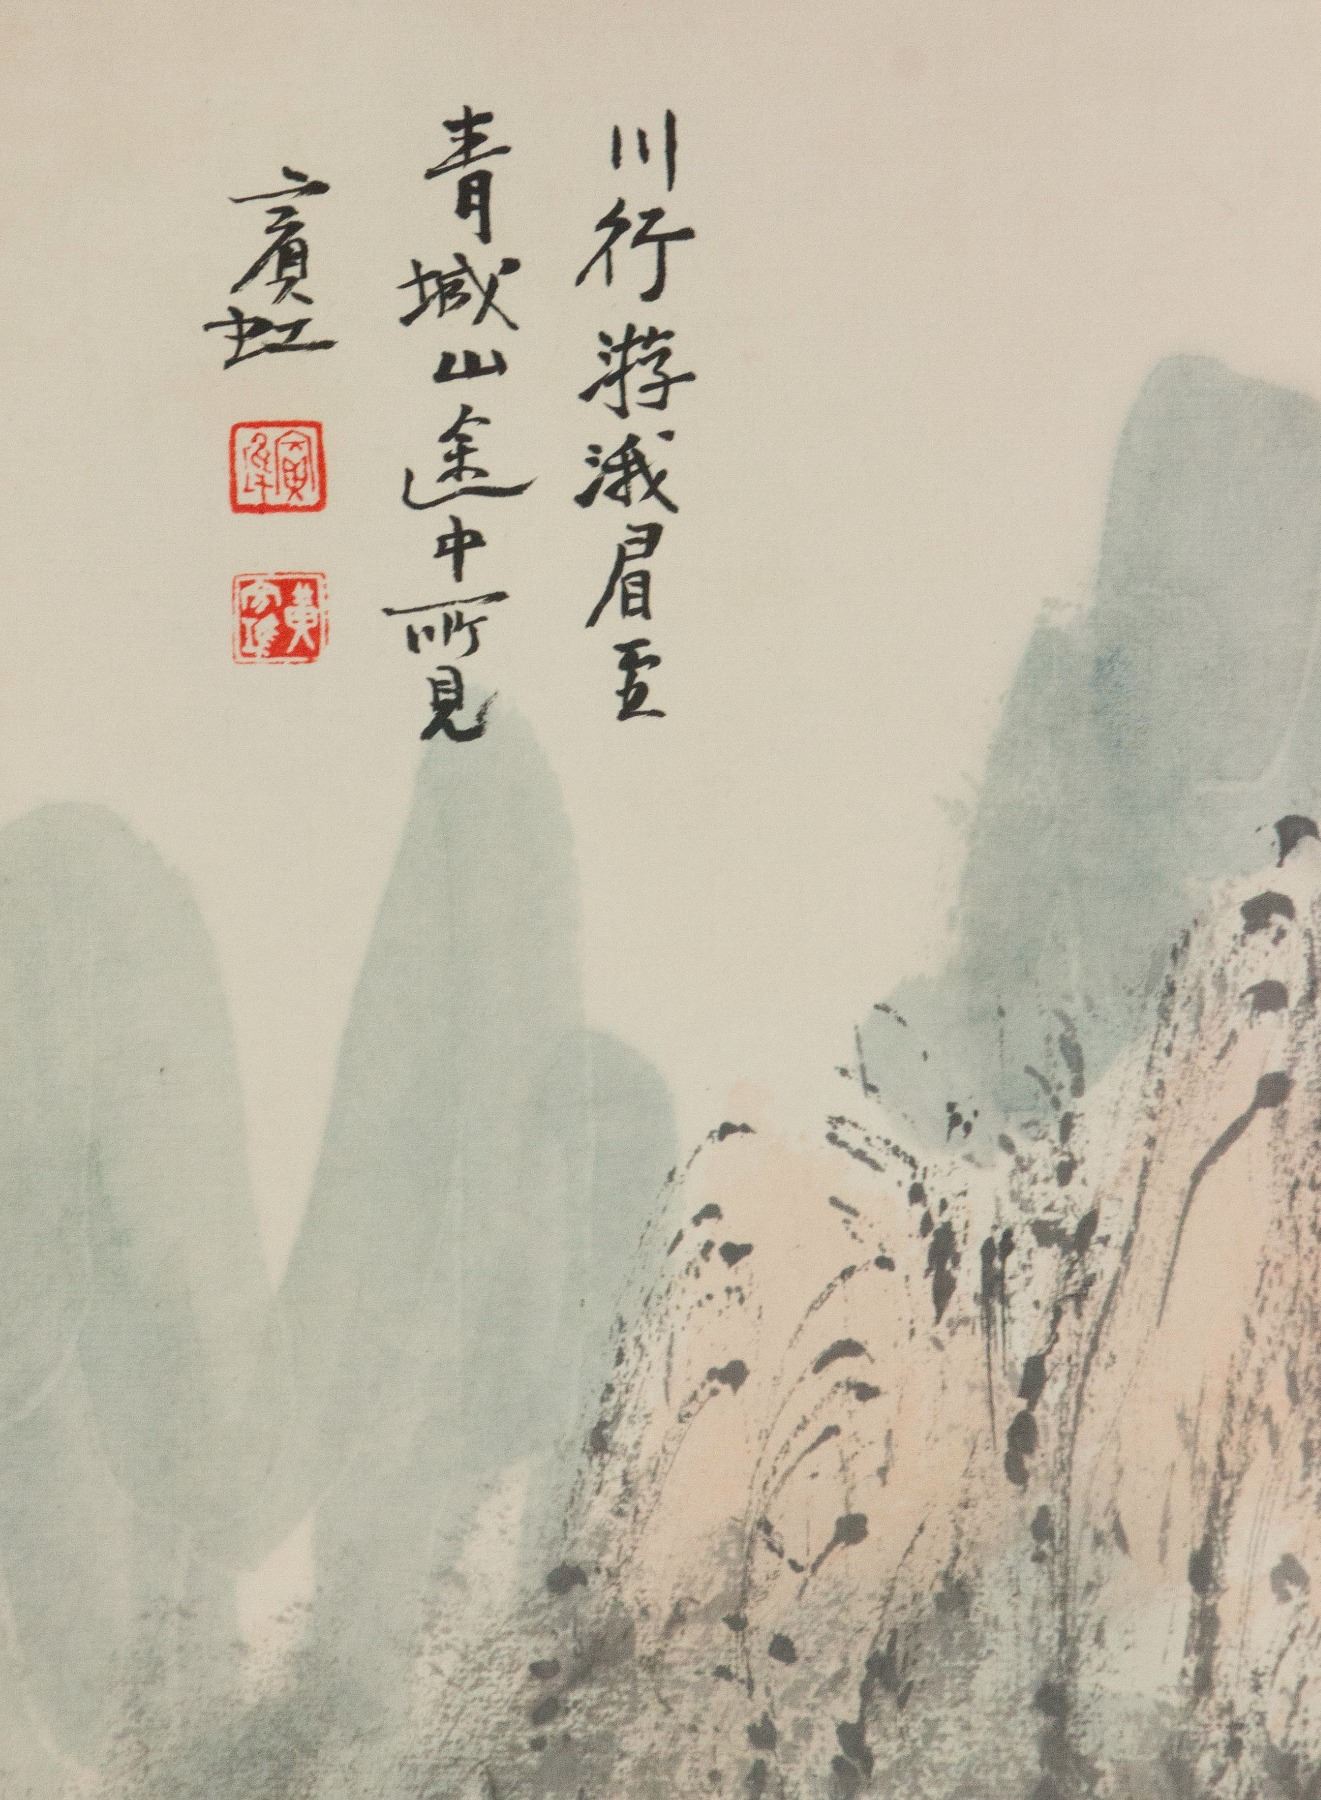 川行游涐眉至
青城山途中所見
賓虹
黃賓虹